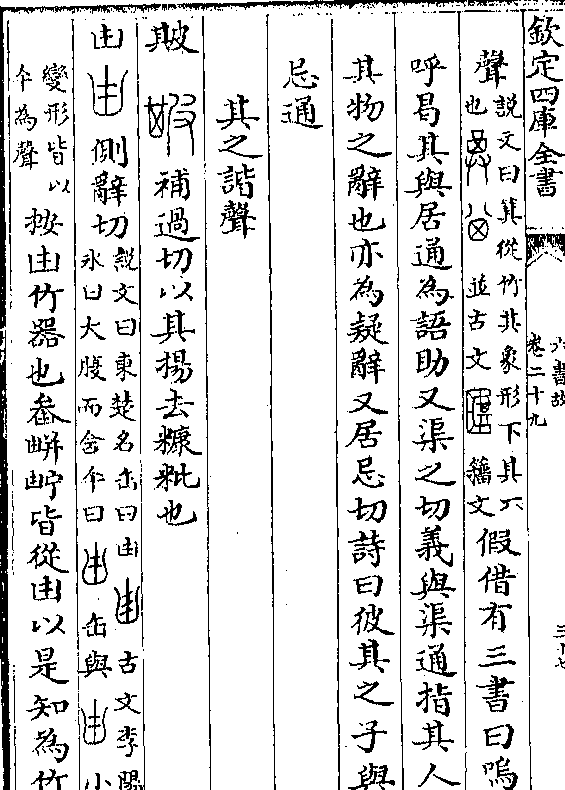 欽定四庫全書
六書故
卷二十九
三十七
聲說文曰箕從竹𠀠象形下其丌
也 並古文 籒文假借有三書曰嗚
呼曷其與居通為語助又渠之切義與渠通指其人
其物之辭也亦為疑辭又居忌切詩曰彼其之子與
忌通
其之諧聲
簸補過切以其揚去糠粃也
甾側辭切說文曰東楚名缶曰甾 古文李陽
冰曰大腹而含仐曰 缶與 小
變形皆以
仐為聲
按甾竹器也 皆從甾以是知為竹